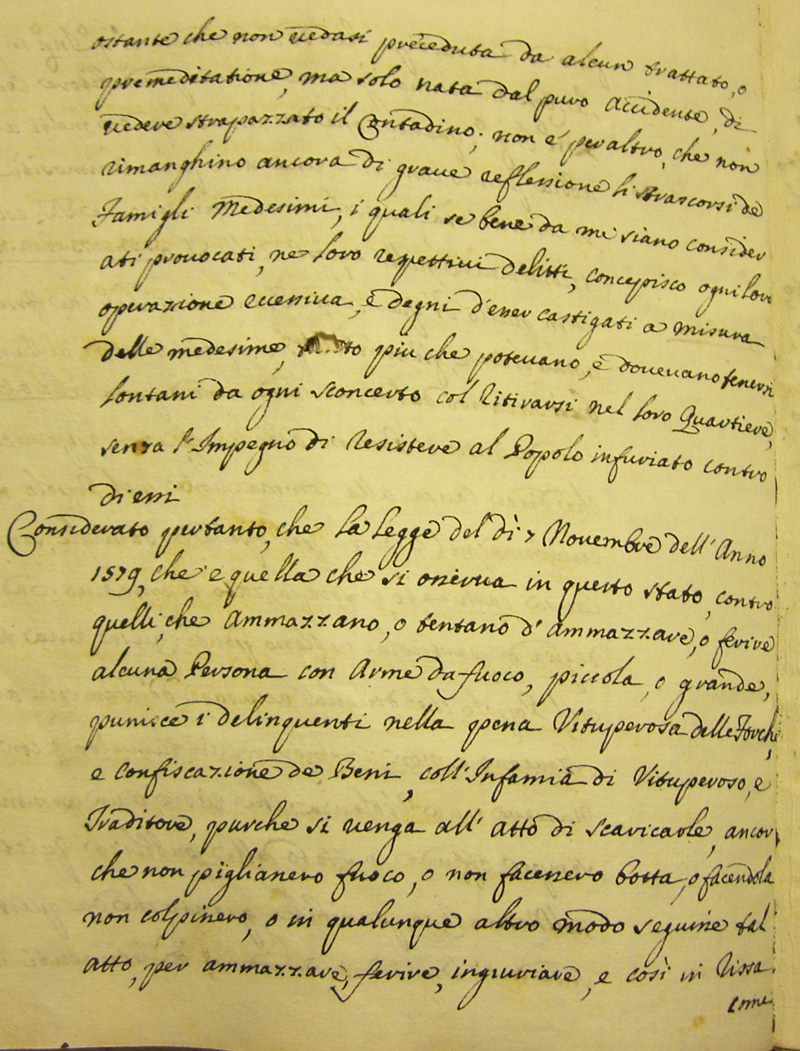 ostante che non vedasi preceduta da alcun trattato, o
premeditatione, ma solo nata dal puro accidente, di
vedere strapazzato il Contadino; non è peraltro, che non
rimanghino ancora di grave reflessione li strascorsi de
Famigli medesimi, i quali se bene da me siano consider
ati provocati, ne loro respettivi delitti, concepisco ogni loro
operazione eccessiva, e degni d'esser castigati a misura
delle medesime, to più che potevano, e dovevano tenersi
lontani da ogni sconcerto col ritirarsi nel loro Quartiere,
senza l'Impegno di resistere al Popolo infuriato contro
di essi
Considerato pertanto, che la Legge del dì 7 Novembre dell'Anno
1579, che è quella che si osserva in questo stato, contro
quelli, che ammazzano, o tentano d'ammazzare, o ferire
alcuna Persona con Arme da fuoco, piccola, o grande,
punisce i delinquenti nella pena Vituperosa delle Forche
e confiscazione de Beni, coll'Infamia di Vituperoso, e
Traditore, purche si venga all'atto di scaricarle, ancor
che non pigliassero fuoco, o non facessero botta, o facendola
non colpissero, o in qualunque altro modo seguisse tal
atto, per ammazzare, ferire, ingiuriare, e così in rissa
come